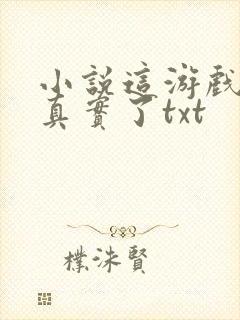 小說這游戲
真實了txt
樸洙賢